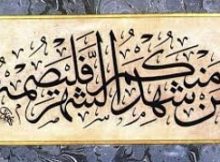 فمن شهد منكم الشهر فليصمه